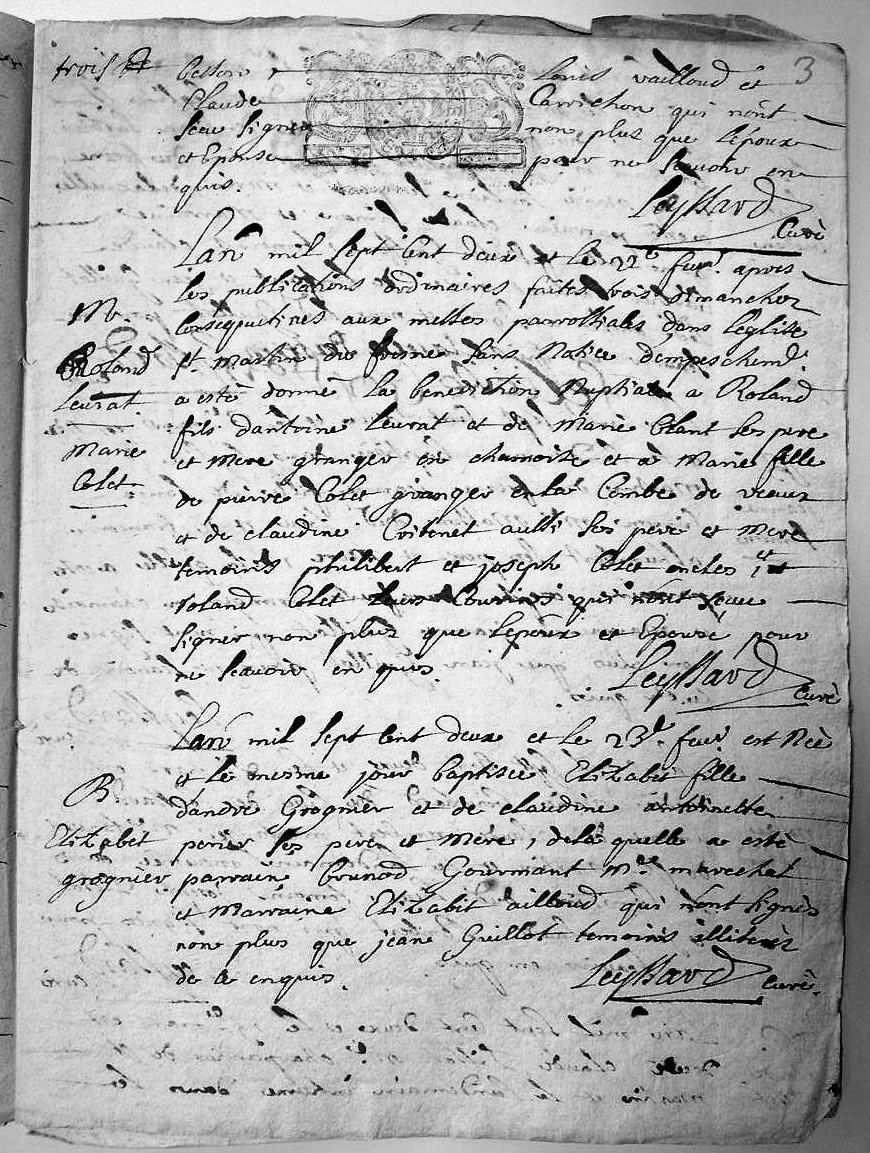 trois 3
besson, Louis vailloud et
Claude Carrichon qui nont
sceu signer non plus que lépoux
et Epouse pour ne scavoir en
quis. Leyssard Curé
Lan mil sept cent deux et le 22e fevr. apres
les publications ordinaires faites trois dimanches
consequutives aux messes parroissiales dans leglise
M. Roland Leurat Marie Colet
st. Martin du fresne sans notice dempeschemt.
a esté donné la benediction Nuptiale a Roland
fils dantoine leurat et de Marie blant ses pere
et mere granger en chamoise et a Marie fille
de pierre Colet granger en la Combe de vaux
et de claudine Critenet aussi ses pere et mere
temoins philibert et joseph Colet oncles et
roland Colet Cousins qui nont sceu
signer non plus que lepoux et Epouse pour
ne scavoir en quis. Leyssard Curé
Lan mil sept cent deux et le 23e. fevr. est Née
et le mesme jour baptisée Elizabet fille
B Elizabet grognier
dandré Grognier et de claudine antoinette
perier ses pere et mere, de la quelle a esté
parrain brunod Gourmant Me. marechal
et Marraine Elizabet ailloud qui nont signés
non plus que jeane Guillot temoins illiterés
de ce enquis. Leyssard Curé.